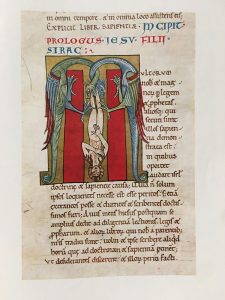 in omni tempore & in omni loco assistens eis.
EXPLICIT LIBER SAPIENTIE INCIPIT
PROLOGUS IESU FILII
SIRAC:
ULTORUM
nobis & mag
norum p legem
& pphetas
aliosq;
illos
sapientia
demon
strata est:
in quibus
oportet
laudare isrl
doctrine & sapientie causa; n solum
ipsos loquentes necesse est esse peritos: sed &
extraneos posse & discentes & scribentes doctis
simos fieri; Auus meus iesus postquam se
amplius dedit ad diligentiam lectionis legis &
pphetarum & alior libror, qui nobis a parentib;
nris traditi sunt: voluit & ipse scribere aliquid
horum que ad doctrinam & sapientiam pertinent:
ut desiderantes discere & illor periti facti